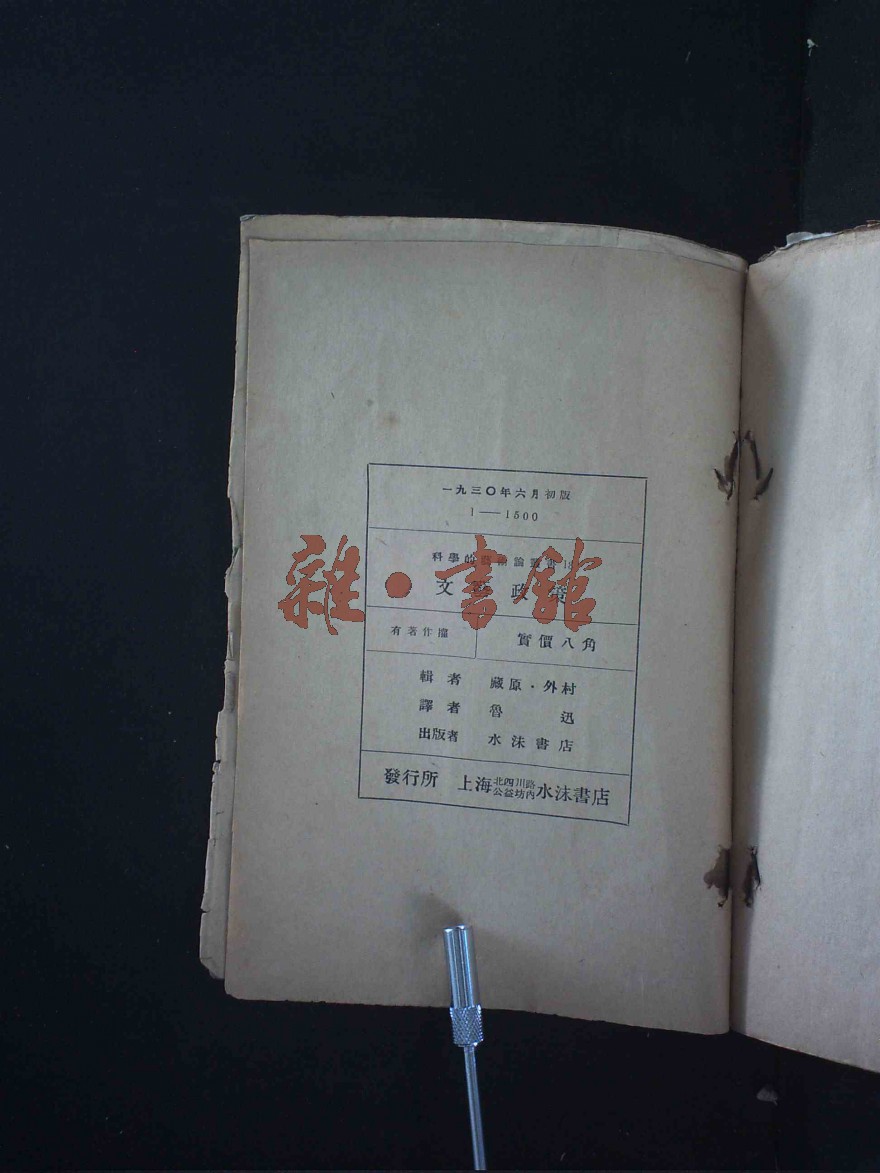 一九三〇年六月初版
1——1500
科學的藝術論叢書 13
文藝政策
有著作權
實價八角
輯者 藏原・外村
譯者 魯迅
出版者 水沫書店
發行所 上海北四川路公益坊內水沫書店
雜・書館